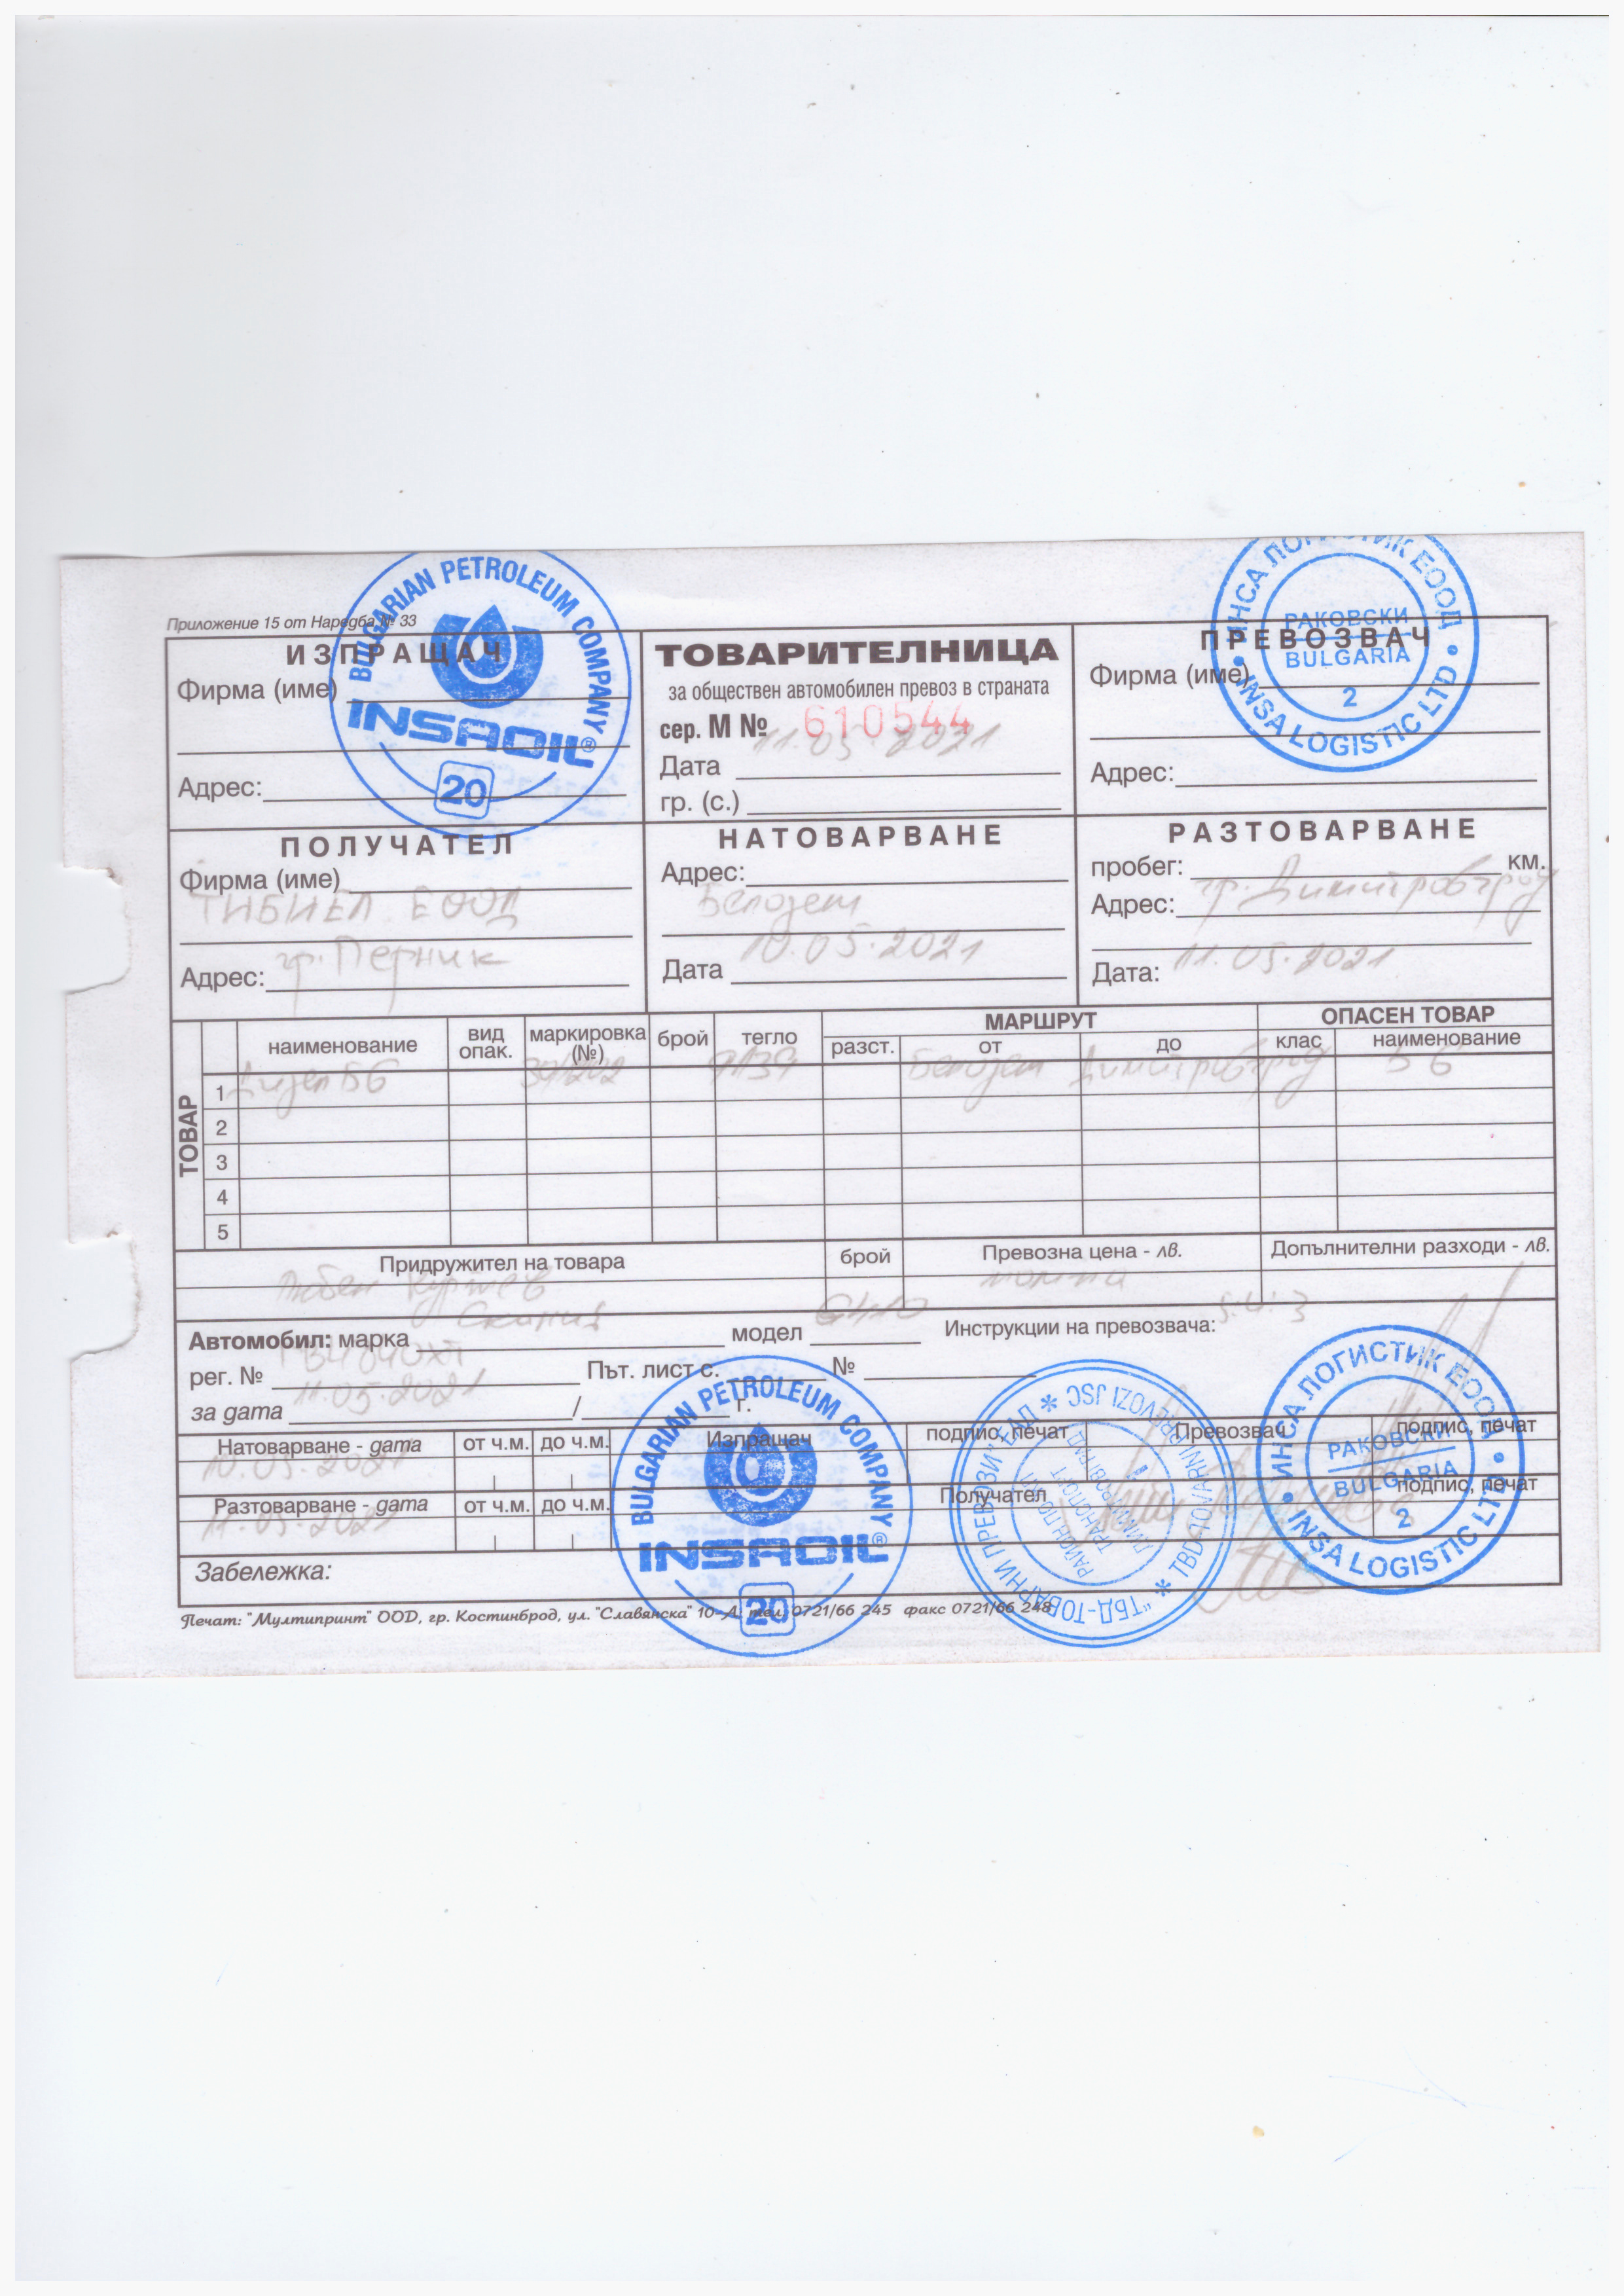 Приложение 15 от Наредба № 33
ИЗПРАЩА�ч
Фирма (име)
Адрес:
BULGARIAN PETROLEUM COMPANY
INSAOIL®
20
ТОВАРИТЕЛНИЦА
за обществен автомобилен превоз в страната
сер. М № 610544
Дата 11.05.2021
гр. (с.)
ПРЕВОЗВАЧ
Фирма (име)
Адрес:
ИНСА ЛОГИСТИК ЕООД
РАКОВСКИ
BULGARIA
2
INSA LOGISTIC LTD
ПОЛУЧАТЕЛ
Фирма (име)
ТИБИЕЛ ЕООД
Адрес: гр. Перник
НАТОВАРВАНЕ
Адрес:
Белозем
Дата 10.05.2021
РАЗТОВАРВАНЕ
пробег: км.
Адрес: гр. Димитровград
Дата: 11.05.2021
ТОВАР
наименование вид опак. маркировка (№) брой тегло МАРШРУТ разст. от до ОПАСЕН ТОВАР клас наименование
1 Дизел Б6 Белозем Димитровград
2
3
4
5
Придружител на товара брой Превозна цена - лв. Допълнителни разходи - лв.
Автомобил: марка Скания модел Инструкции на превозвача:
рег. № Път. лист с. №
за дата 11.05.2021 / г.
Натоварване - дата от ч.м. до ч.м. Изпращач подпис, печат Превозвач подпис, печат
10.05.2021
Разтоварване - дата от ч.м. до ч.м. Получател подпис, печат
11.05.2021
Забележка:
BULGARIAN PETROLEUM COMPANY
INSAOIL®
20
"ТБД-ТОВАРНИ ПРЕВОЗИ" ЕАД * TBD-TOVARNI PREVOZI JSC *
ИНСА ЛОГИСТИК ЕООД
РАКОВСКИ
BULGARIA
2
INSA LOGISTIC LTD
Печат: "Мултипринт" ООD, гр. Костинброд, ул. "Славянска" 10-А тел. 0721/66 245 факс 0721/66 248